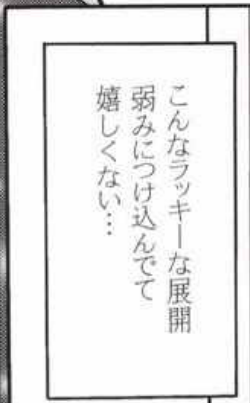 こんなラッキーな展開
弱みにつけ込んでて
嬉しくない…